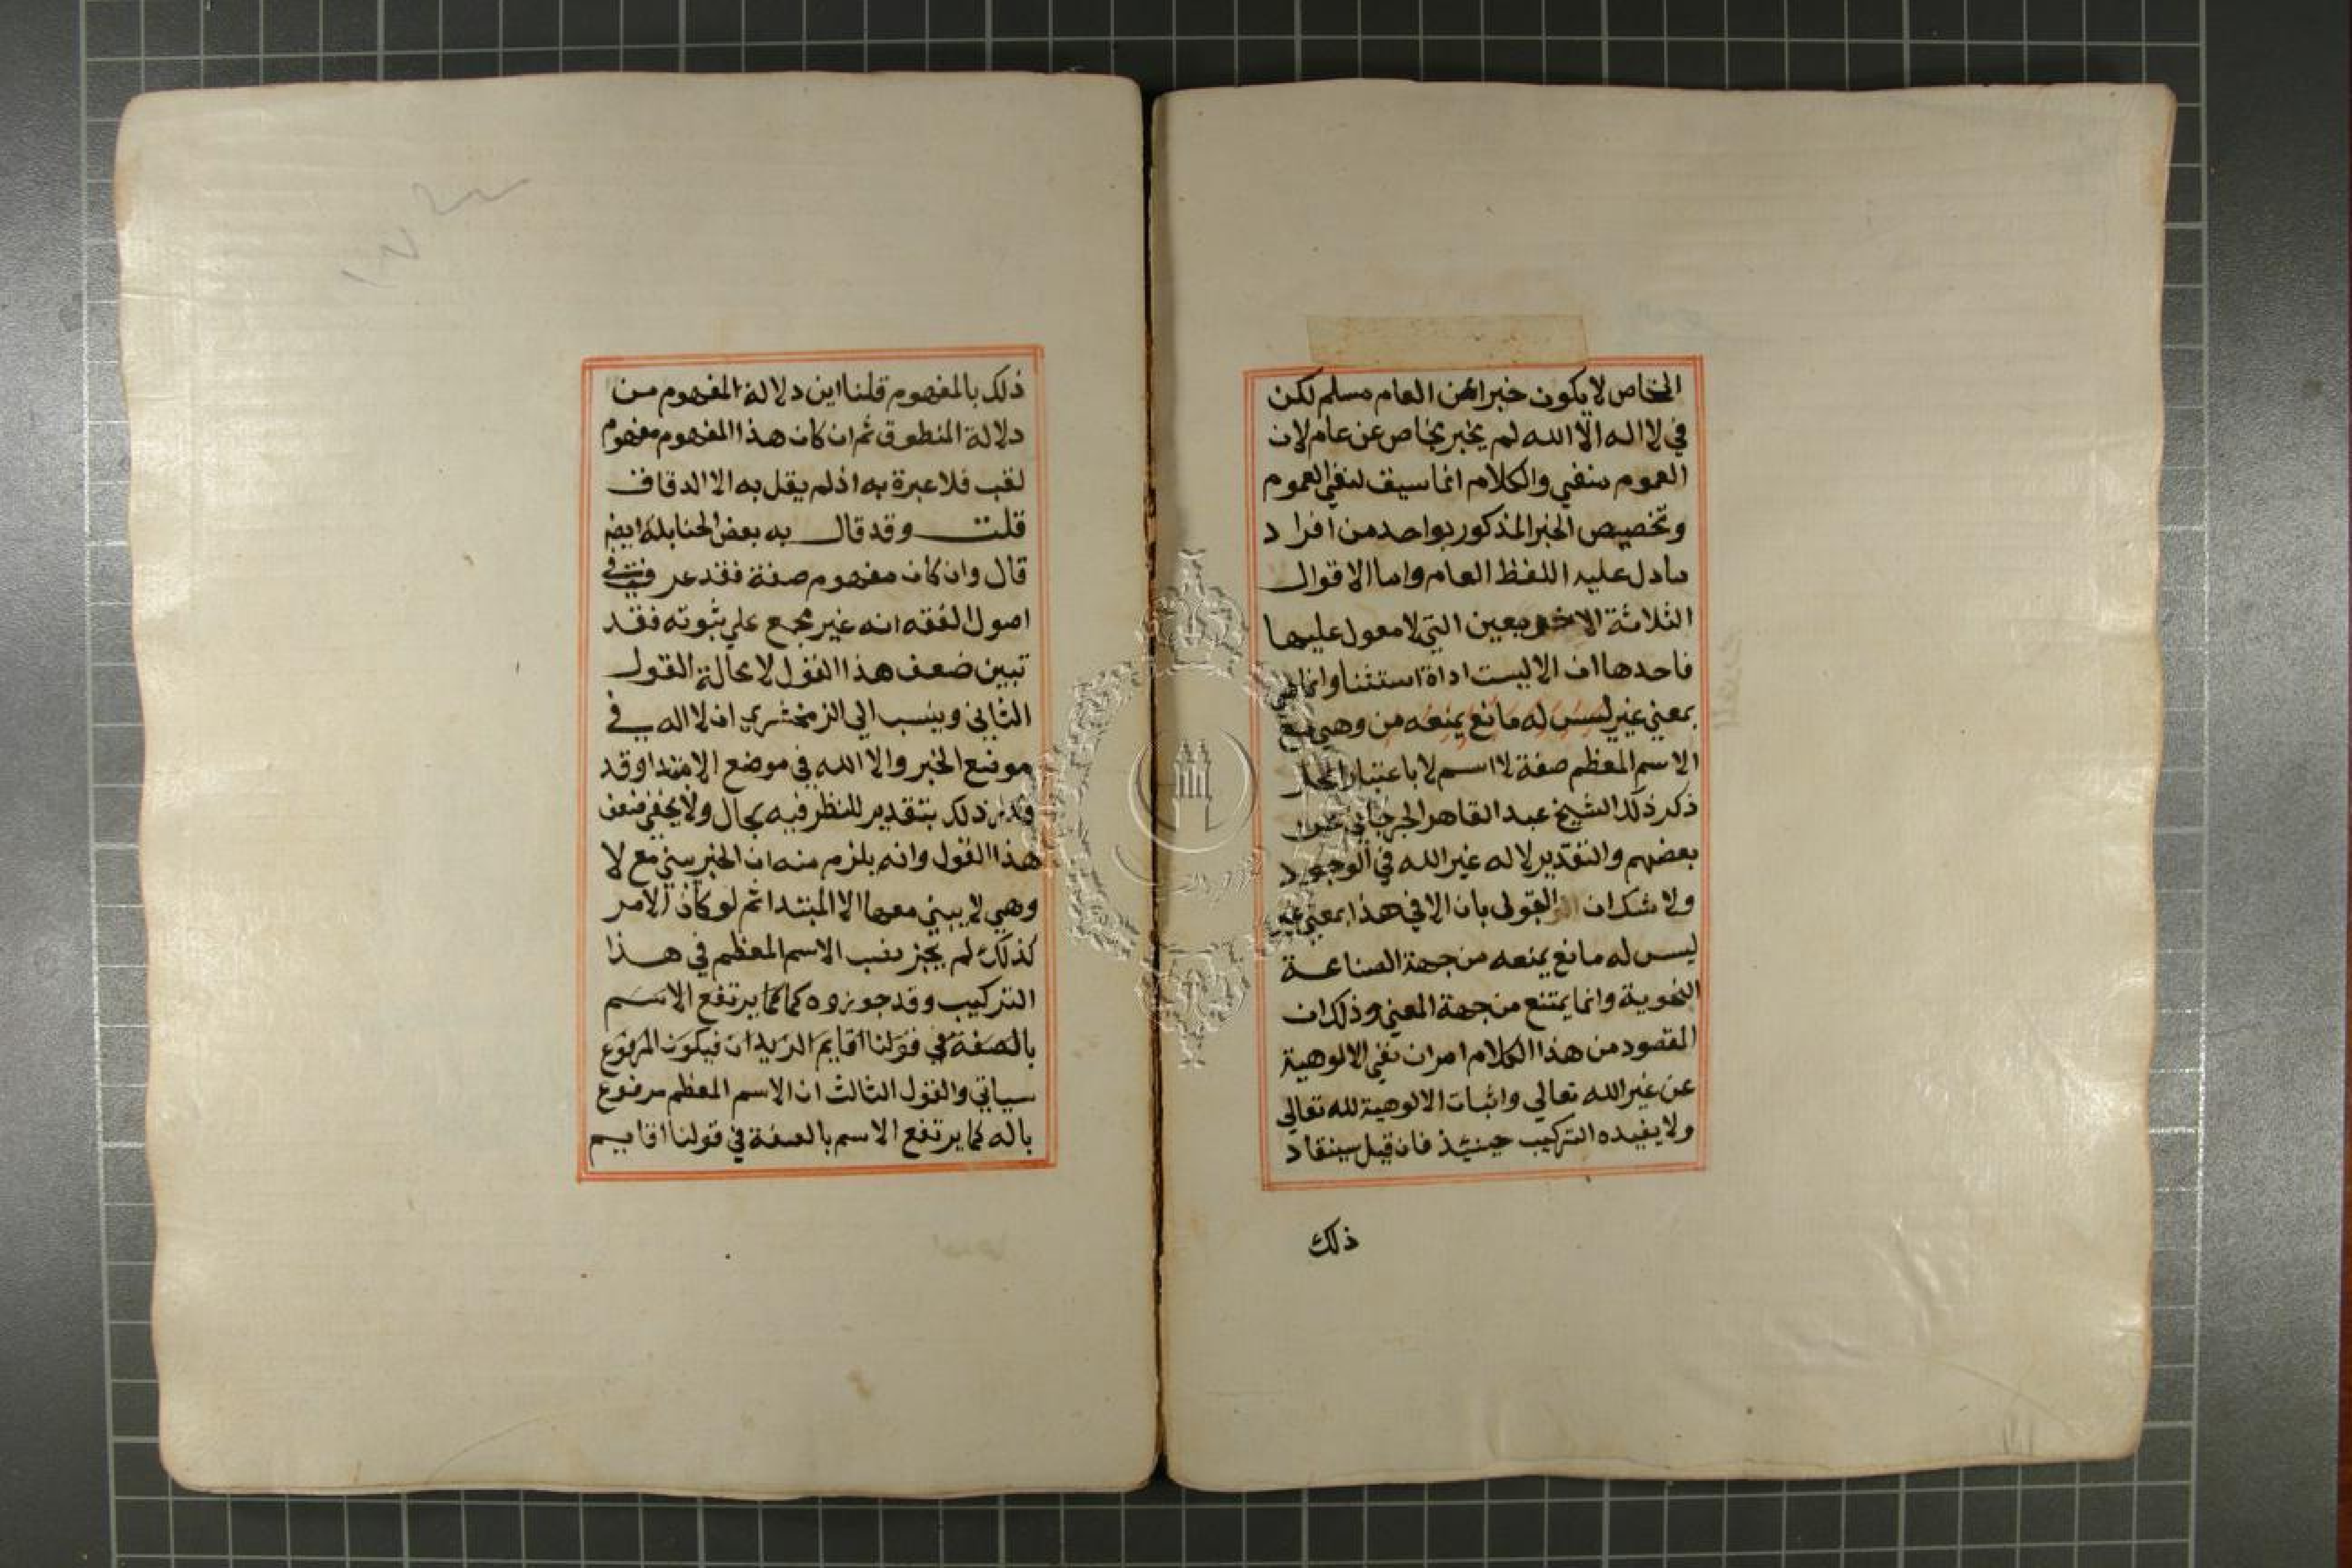 الخاص لا يكون خبرا عن العام مسلم لكن
في لا اله الا الله لم يخبر بخاص عن عام لان
العموم منفي والكلام انما سيق لنفي العموم
وتخصيص الخبر المذكور بواحد من افراد
مادل عليه اللفظ العام واما الاقوال
الثلاثة الاخر بعين التي لا معول عليها
فاحدها ان الا ليست اداة استثنا وانما هي
بمعني غير ليس له مانع يمنعه من وهي مع
الاسم المعظم صفة لا اسم لا باعتبار المحل
ذكر ذلك الشيخ عبد القاهر الجرجاني عن
بعضهم والتقدير لا له غير الله في الوجود
ولا شك ان القول بان الا في هذا بمعني غير
ليس له مانع يمنعه من جهة الصناعة
النحوية وانما يمتنع من جهة المعني وذلك ان
المقصود من هذا الكلام امران نفي الالوهية
عن غير الله تعالي واثبات الالوهية لله تعالي
ولا يفيده التركيب حينئذ فان قيل سينقاد
ذلك
ذلك بالمفهوم قلنا اين دلالة المفهوم من
دلالة المنطوق ثم ان كان هذا المفهوم مفهوم
لقب فلا عبرة به اذ لم يقل به الا الدقاف
قلت وقد قال به بعض الحنابلة ايض
قال وان كان مفهوم صفة فقد عرفت في
اصول الفقه انه غير مجمع علي ثبوته فقد
تبين ضعف هذا القول لا محالة القول
الثاني وينسب الي الزمخشري ان لا اله في
موضع الخبر والا الله في موضع الابتدا وقد
ذلك بتقدير للنظر فيه بحال ولا يخفي ضعف
هذا القول وانه يلزم منه ان الخبر يبني مع لا
وهي لا يبني معها الا المبتدا ثم لو كان الامر
كذلك لم يجز نصب الاسم المعظم في هذا
التركيب وقد جوزوه كما كما يرتفع الاسم
بالصفة في قولنا اقايم الزيدان فيكون المرفوع
سياتي والقول الثالث ان الاسم المعظم مرفوع
باله كما يرتفع الاسم بالصفة في قولنا اقايم